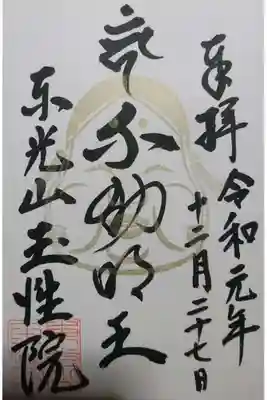 奉拝 令和元年
十二月二十七日
不動明王
東光山玉性院